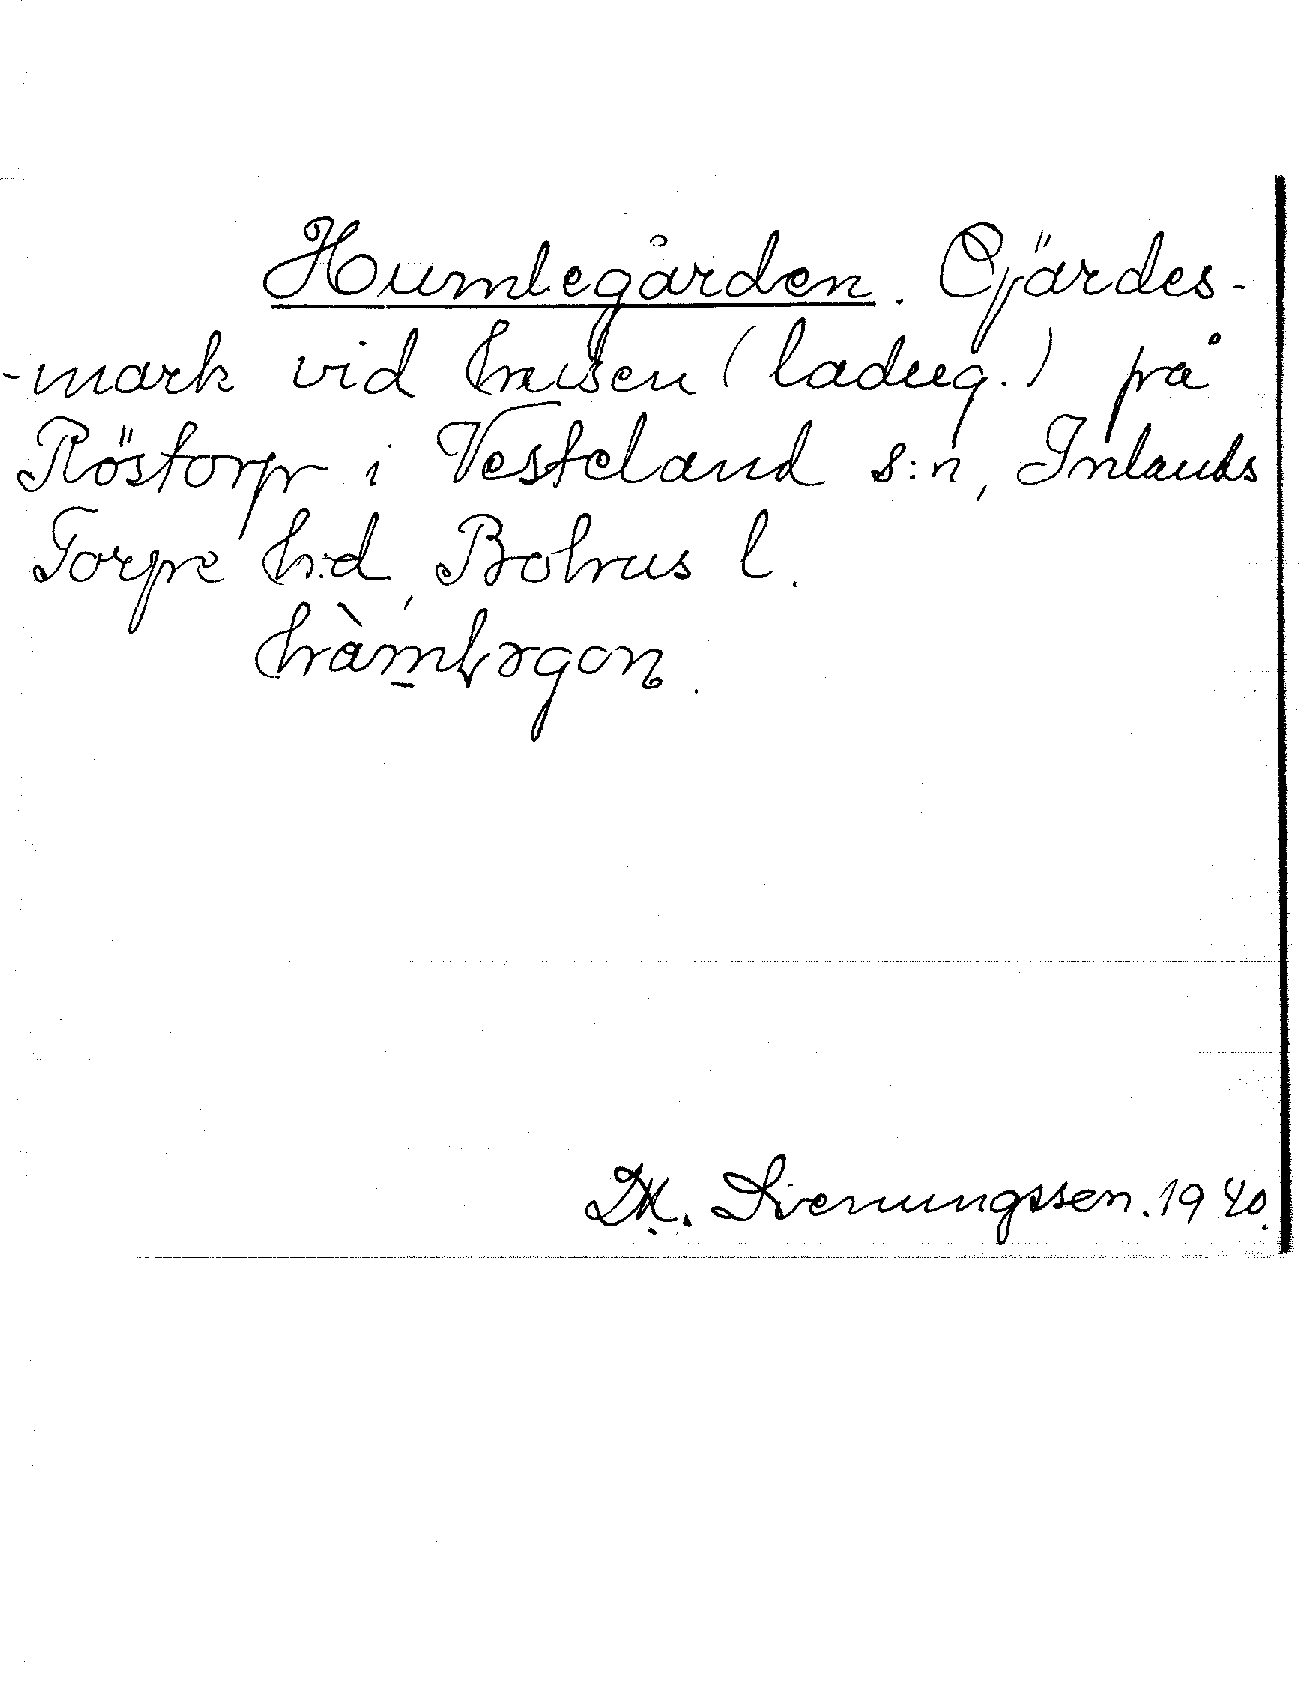 Humlegården. Gjärdes-
-mark vid husen (ladug.) på
Röstorp i Vesteland s:n, Inlands
Torpe h:d, Bohus l.
D.M. Svenungsson. 1940.